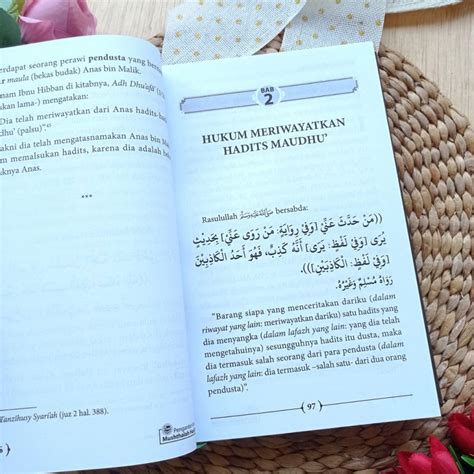 erdapat seorang perawi pendusta yang ber
maula (bekas budak) Anas bin Malik.
nam Ibnu Hibban di kitabnya, Adh Dhu'afa'
akan lama-) mengatakan:
Dia telah meriwayatkan dari Anas hadits-
dhu' (palsu)"
akni dia telah mengatasnamakan Anas bin
m memalsukan hadits, karena dia adalah
aknya Anas.
***
Tanzihusy Syari'ah (juz 2 hal. 388).
Pengantar
Mushthalah
BAB
2
HUKUM MERIWAYATKAN
HADITS MAUDHU'
Rasulullah ﷺ bersabda:
((مَنْ حَدَّثَ عَنِّيْ [وَفِيْ رِوَايَةٍ: مَنْ رَوَى عَنِّيْ] بِحَدِيْثٍ
يُرَى [وَفِيْ لَفْظٍ: يَرَى] أَنَّهُ كَذِبٌ، فَهُوَ أَحَدُ الْكَاذِبِيْنَ
[وَفِيْ لَفْظٍ: الْكَاذِبَيْنِ])).
رَوَاهُ مُسْلِمٌ وَغَيْرُهُ.
"Barang siapa yang menceritakan dariku (dalam
riwayat yang lain: meriwayatkan dariku) satu hadits yang
dia menyangka (dalam lafazh yang lain: yang dia telah
mengetahuinya) sesungguhnya hadits itu dusta, maka
dia termasuk salah seorang dari para pendusta (dalam
lafazh yang lain: dia termasuk –salah satu- dari dua orang
pendusta)".
97